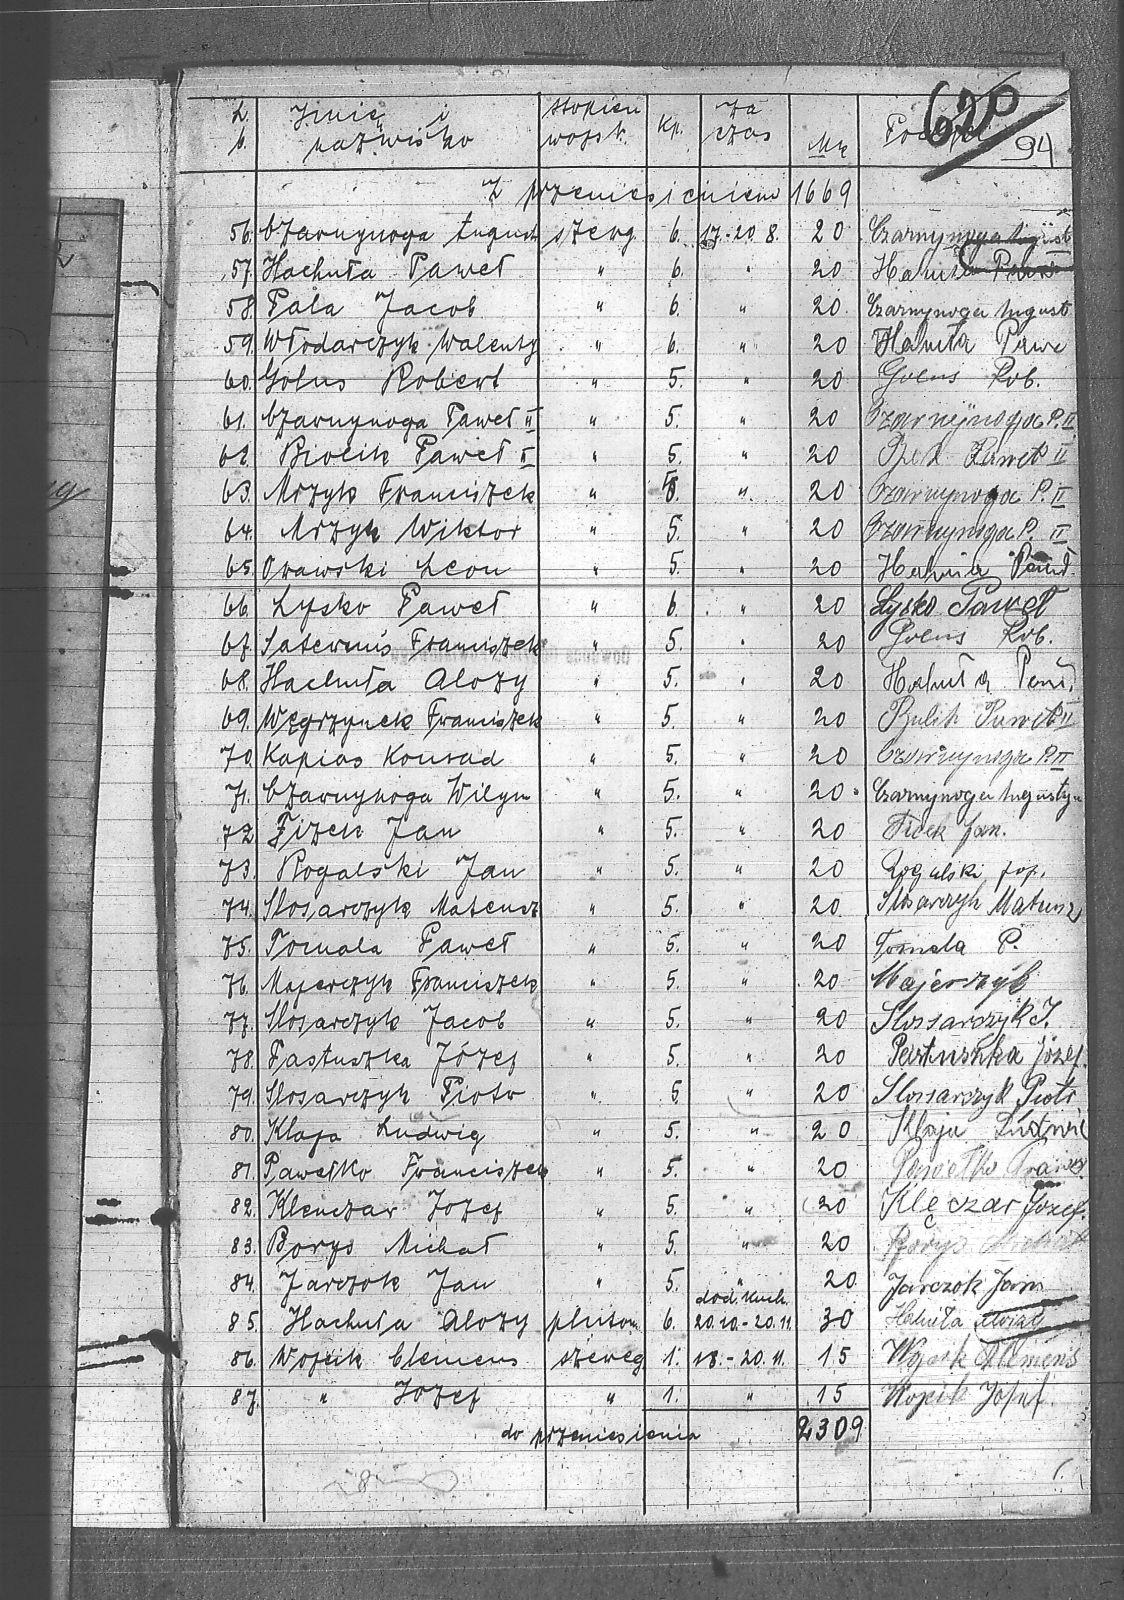 620
94
L. b. Imię i nazwisko stopień wojsk. Kp. Za czas Mk
Z przeniesieniem 1669
56. Czarnynoga August szereg 6. 17.-20.8. 20 Czarnynoga August
57. Hachuła Paweł " 6. " 20
58. Pala Jacob " 6. " 20 Czarnynoga August
59. Włodarczyk Walenty " 6. " 20 Hahuła Pawe
60. Golus Robert " 5. " 20 Golus Rob.
61. Czarnynoga Paweł II " 5. " 20 Czarnynoga P. II
62. Biolik Paweł II " 5. " 20 Paweł II
63. Mrzyk Franciszek " 5. " 20 Czarnynoga P. II
64. Mrzyk Wiktor " 5. " 20 Czarnynoga P. II
65. Orawski Leon " 5. " 20
66. Łysko Paweł " 6. " 20 Łysko Paweł
67. Franciszek " 5. " 20 Golus Rob.
68. Hachuła Alozy " 5. " 20
69. Węgrzynek Franciszek " 5. " 20 Paweł II
70. Kapias Konrad " 5. " 20 Czarnynoga P. II
71. Czarnynoga Wilym " 5. " 20 Czarnynoga Augustyn
72. Fizek Jan " 5. " 20 Ficek Jan.
73. Rogalski Jan " 5. " 20 Rogalski
74. Slosarczyk Mateusz " 5. " 20 Slosarczyk Mateusz
75. Tomala Paweł " 5. " 20 Tomala P.
76. Majerczyk Franciszek " 5. " 20 Majerczyk
77. Slosarczyk Jacob " 5. " 20 Slossarczyk J.
78. Pastuszka Józef " 5. " 20 Pastushka Józef.
79. Slosarczyk Piotr " 5. " 20 Slossarczyk Piotr
80. Klaja Ludwig " 5. " 20 Klaja
81. Pawełko Franciszek " 5. " 20 Pawełko
82. Klenczar Jozef " 5. " 20 Klęczar Jozef.
83. Borys Michał " 5. " 20 Borys
84. Jarczok Jan " 5. " 20 Jarczok Jan
85. Hachuła Alozy pluton 6. dod. kuch. 20.10.-20.11. 30 Hahuła
86. Wojcik Clemens szereg 1. 18.-20.11. 15 Wojcik Klemens
87. " Jozef " 1. " 15 Wojcik Józef.
do przeniesienia 2309